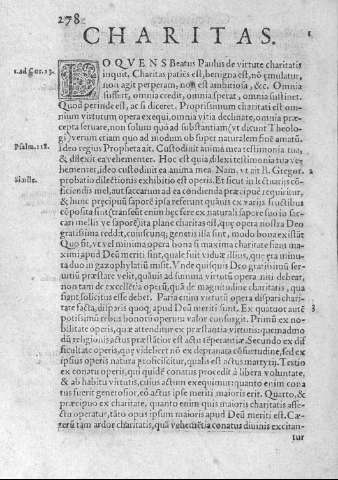 278.
CHARITAS.
1
1. ad Cor. 13.
LOQVENS Beatus Paulus de virtute charitatis
inquit, Charitas patiēs est, benigna est, nō ęmulatur,
non agit perperam, non est ambitiosa, &c. Omnia
suffert, omnia credit, omnia sperat, omnia sustinet.
Quod perinde est, ac si diceret. Propriissimum charitati est om-
nium virtutum opera exequi, omnia vitia declinate, omnia præ-
cepta seruare, non solum quoad substantiam (vt dicunt Theolo-
gi) verum etiam quo ad modum ob super naturalem finē amatū.
Psalm. 118.
Ideo regius Propheta ait. Custodiuit anima mea testimonia tua,
& dilexit ea vehementer. Hoc est quia dilexi testimonia tua ve-
hementer, ideo custodiuit ea anima mea. Nam, vt ait B. Gregor.
2
probatio dilectionis exhibitio est operis. Et sicut in electuariis cō-
ficiendis mel, aut saccarum ad ea condienda præcipuē requiritur,
& hunc præcipuū saporē ipsa referunt quāuis ex variis fructibus
cōposita sint (transeūt enim hęc fere ex naturali sapore suo in sac-
cari mellis ve saporē) ita plane charitas est, quę opera nostra Deo
gratissima reddit, cuiuscunq; generis illa sint, modo bona existāt
Quo fit, vt vel minima opera bona si maxima charitate fiant ma-
ximi apud Deū meriti sint, quale fuit viduæ illius, quę æra minu-
ta duo in gazophylatiū misit. Vnde quisquis Deo gratissimū ser-
uitiū præstare velit, quāuis ad summa virtutū opera niti debeat,
non tam de excellētia operū, quā de magnitudine charitatis, qua
fiant solicitus esse debet. Paria enim virtutū opera dispari chari-
tate facta, disparis quoq; apud Deū meriti sunt. Ex quatuor autē
3
potissimū rebus honoris operum valor consurgit. Primū ex no-
bilitate operis, quæ attenditur ex præstantia virtutis: quemadmo
dū religionis actus præstātior est actu tēperantiæ. Secundo ex dif
ficultate operis, quę videlicet nō ex deprauata cōsuetudine, sed ex
ipsius operis natura proficiscitur, qualis est actus martyrij. Tertio
ex conatu operis, qui quidē conatus procedit à libera voluntate,
& ab habitu virtutis, cuius actum exequimur: quanto enim cona
tus fuerit generosior, eò actus ipse meriti maioris erit. Quarto, &
præcipuo ex charitate, quanto enim quis maioris charitatis affe-
ctu operatur, tāto opus ipsum maioris apud Deū meriti est. Cæ-
terū tam ardor charitatis, quā vehemētia conatus diuinis excitan-
tur